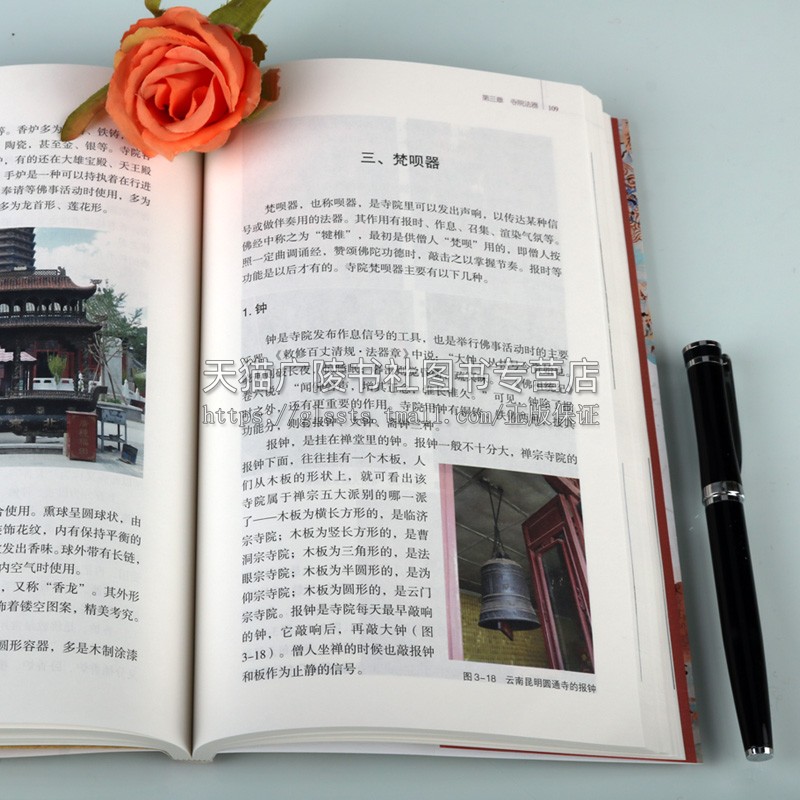 等。香炉多为 、铁铸，
陶瓷，甚至金、银等。寺院
炉，有的还在大雄宝殿、天王殿
手炉是一种可以持执着在行进
奉请等佛事活动时使用，多为
多为龙首形、莲花形。
合使用。熏球呈圆球状，由
装饰花纹，内有保持平衡的
发出香味。球外带有长链，
内空气时使用。
，又称“香龙”。其外形
饰着镂空图案，精美考究。
圆形容器，多是木制涂漆
第三章 寺院法器 109
三、梵呗器
梵呗器，也称呗器，是寺院里可以发出声响，以传达某种信
号或做伴奏用的法器。其作用有报时、作息、召集、渲染气氛等。
佛经中称之为“犍椎”，最初是供僧人“梵呗”用的，即僧人按
照一定曲调诵经，赞颂佛陀功德时，敲击之以掌握节奏。报时等
功能是以后才有的。寺院梵呗器主要有以下几种。
1. 钟
钟是寺院发布作息信号的工具，也是举行佛事活动时的主要
《敕修百丈清规·法器章》中说：“大钟
天猫广陵书社图书专营店
https://glssts.tmall.com/正版保证
时之外，还有更重要的作用。寺院用钟有铜铸、铁铸
功能分，则有报钟、大钟、斋钟三种。
报钟，是挂在禅堂里的钟。报钟一般不十分大，禅宗寺院的
报钟下面，往往挂有一个木板，人
们从木板的形状上，就可看出该
寺院属于禅宗五大派别的哪一派
了——木板为横长方形的，是临济
宗寺院；木板为竖长方形的，是曹
洞宗寺院；木板为三角形的，是法
眼宗寺院；木板为半圆形的，是沩
仰宗寺院；木板为圆形的，是云门
宗寺院。报钟是寺院每天最早敲响
的钟，它敲响后，再敲大钟（图
3-18）。僧人坐禅的时候也敲报钟
和板作为止静的信号。
图 3-18 云南昆明圆通寺的报钟